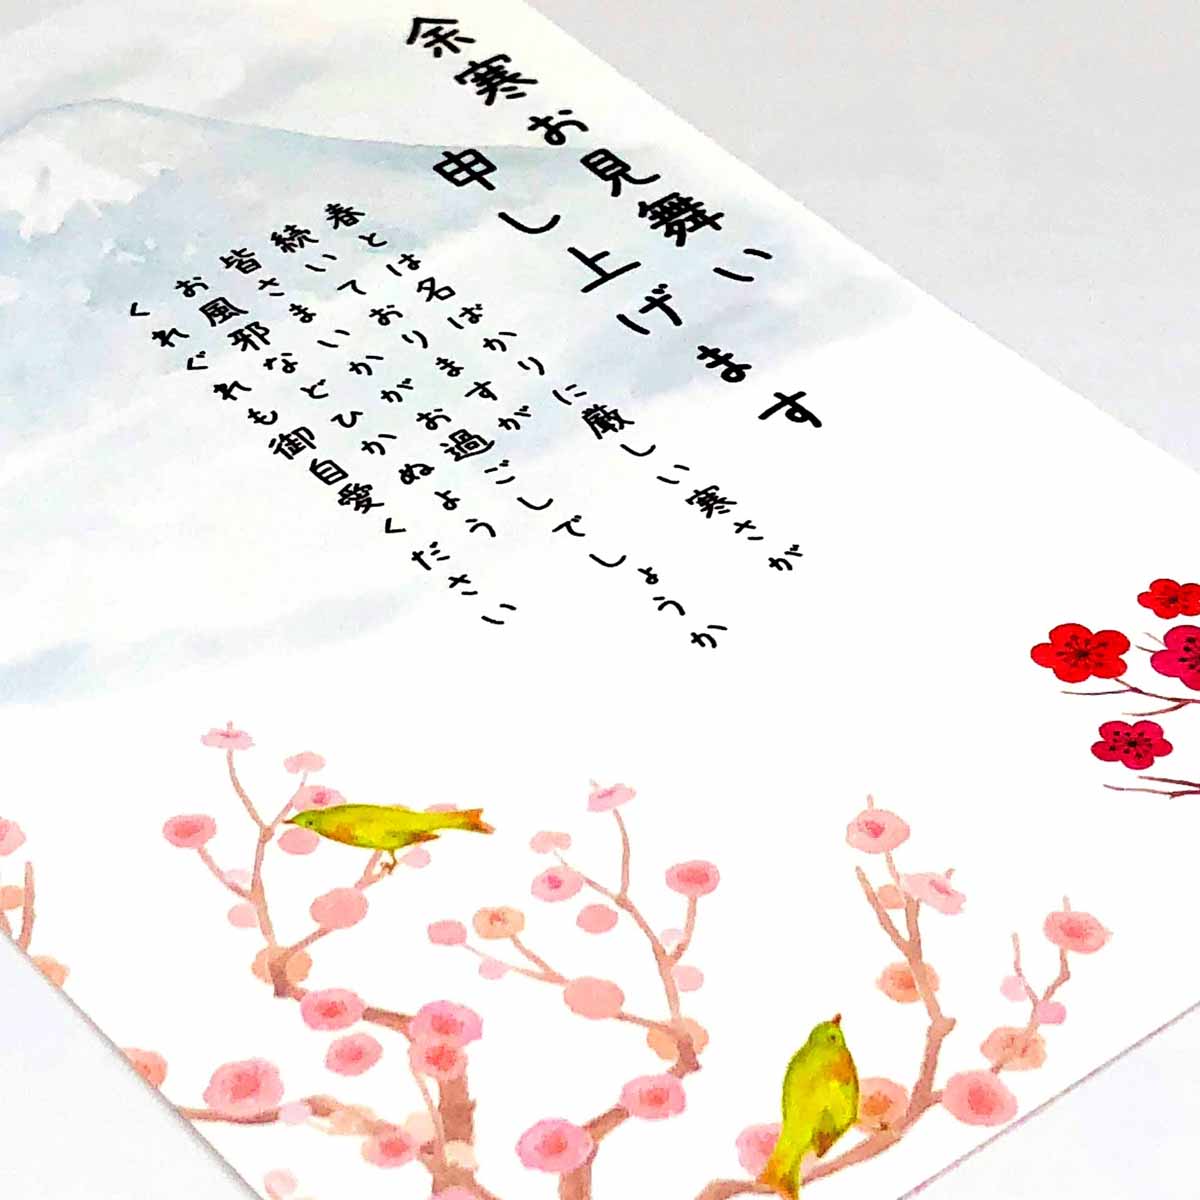 余寒お見舞い
申し上げます
春とは名ばかりに厳しい寒さが
続いておりますがお過ごしでしょうか
皆さまいかがお過ごしでしょうか
お風邪などひかぬよう
くれぐれも御自愛ください